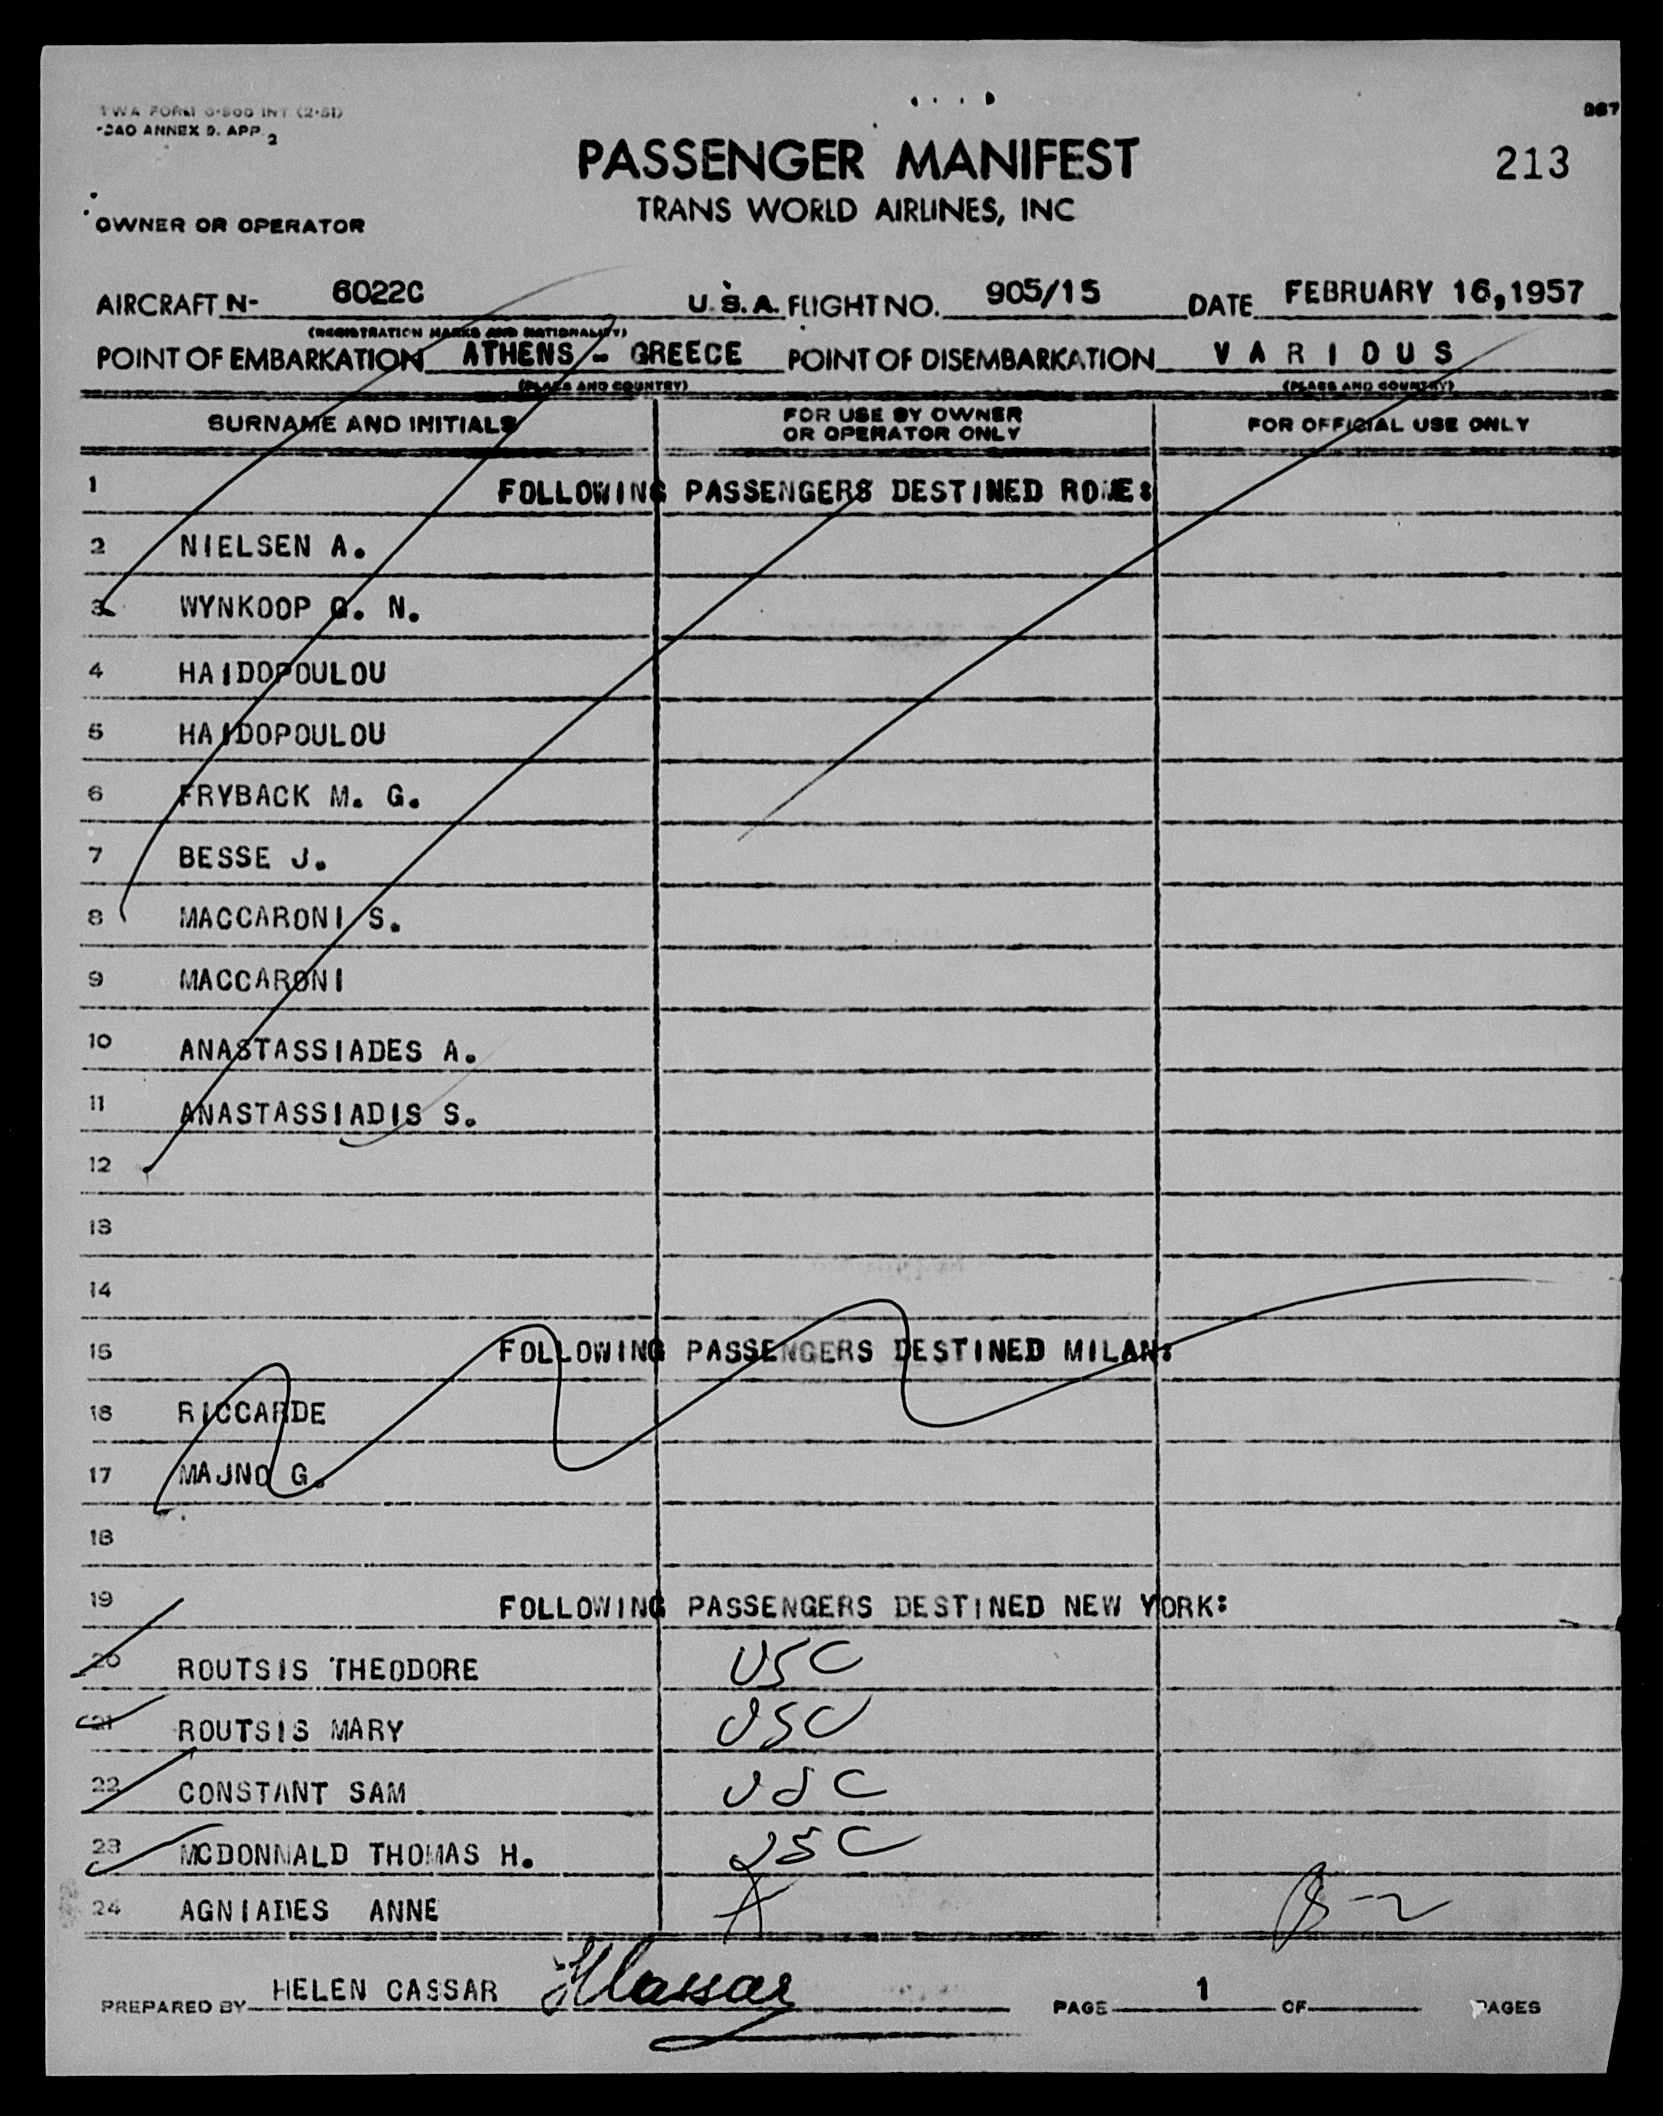 TWA FORM O-800 INT (2-51)
ICAO ANNEX 9. APP. 2
967
PASSENGER MANIFEST
213
TRANS WORLD AIRLINES, INC
OWNER OR OPERATOR
AIRCRAFT N- 6022C U.S.A. FLIGHT NO. 905/15 DATE FEBRUARY 16,1957
(REGISTRATION MARKS AND NATIONALITY)
POINT OF EMBARKATION ATHENS - GREECE POINT OF DISEMBARKATION V A R I O U S
(PLACE AND COUNTRY) (PLACE AND COUNTRY)
SURNAME AND INITIALS FOR USE BY OWNER OR OPERATOR ONLY FOR OFFICIAL USE ONLY
1 FOLLOWING PASSENGERS DESTINED ROME:
2 NIELSEN A.
3 WYNKOOP G. N.
4 HAIDOPOULOU
5 HAIDOPOULOU
6 FRYBACK M. G.
7 BESSE J.
8 MACCARONI S.
9 MACCARONI
10 ANASTASSIADES A.
11 ANASTASSIADIS S.
12
13
14
15 FOLLOWING PASSENGERS DESTINED MILAN:
16 RICCARDE
17 MAJNO G.
18
19 FOLLOWING PASSENGERS DESTINED NEW YORK:
20 ROUTSIS THEODORE USC
21 ROUTSIS MARY USC
22 CONSTANT SAM USC
23 MCDONNALD THOMAS H. USC
24 AGNIADES ANNE A B-2
PREPARED BY HELEN CASSAR HCassar PAGE 1 OF PAGES